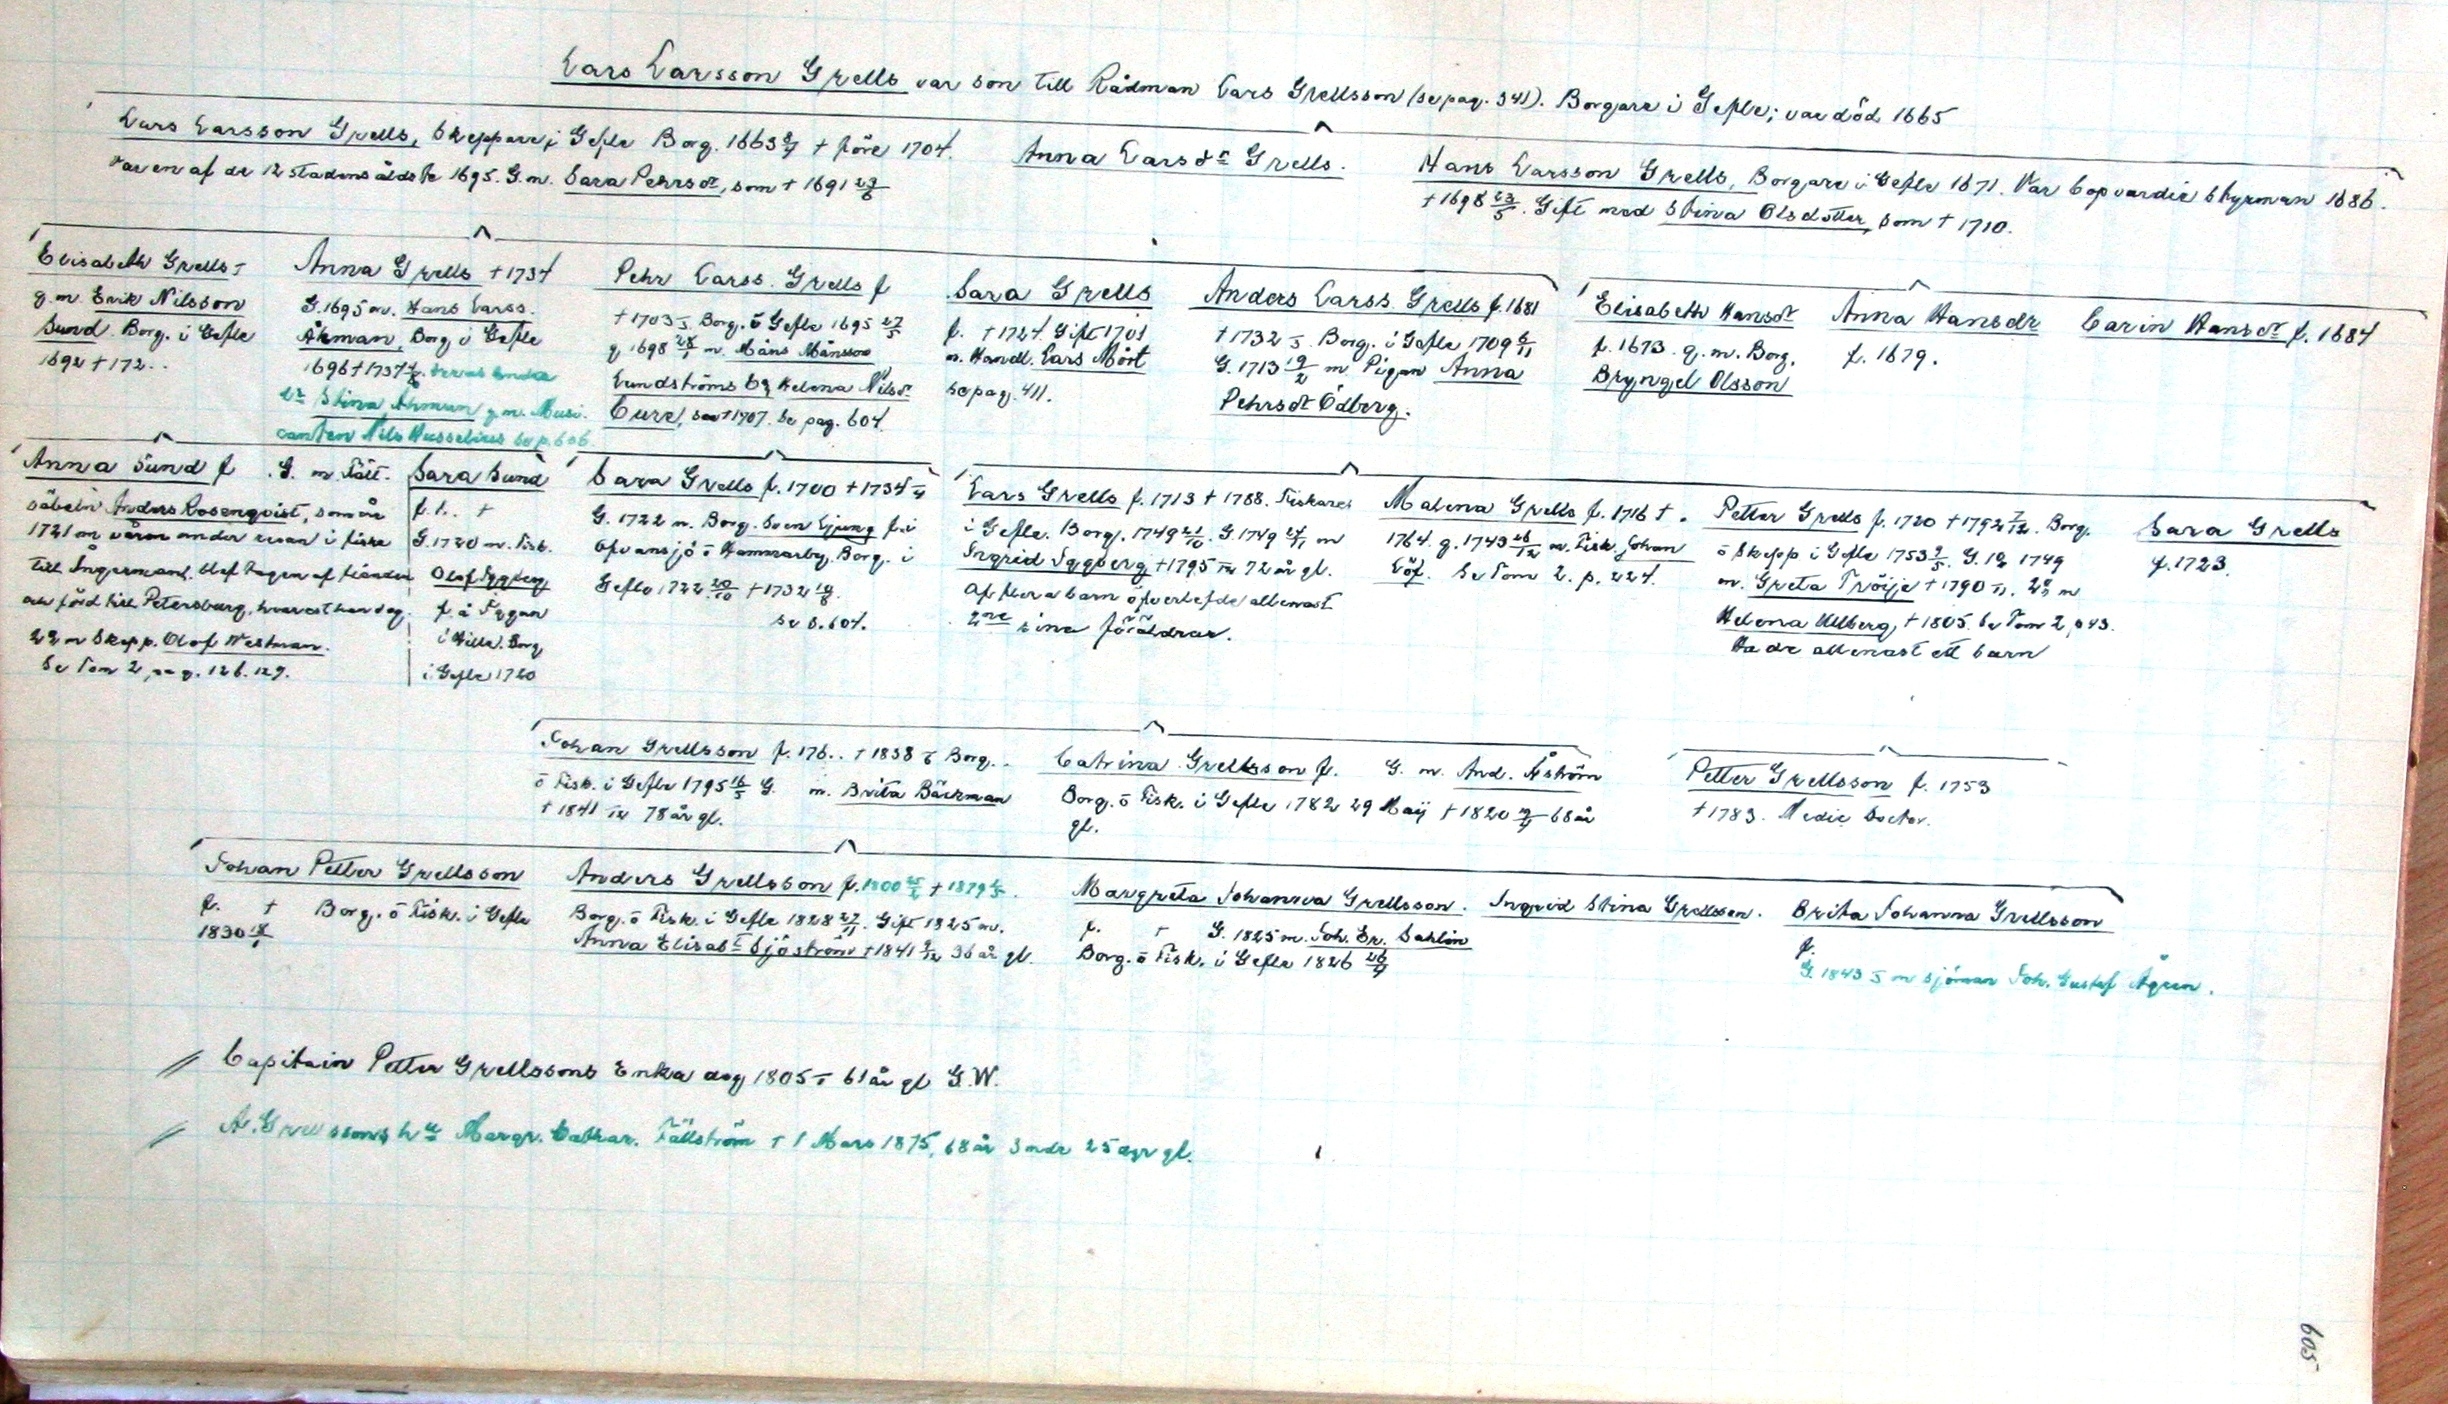 Lars Larsson Grells var son till Rådman Lars Grellsson (se pag. 341). Borgare i Gefle; var död 1665
Lars Larsson Grells, Skeppare i Gefle Borg. 1663 9/7 + före 1704.
Var en af de 12 stadens äldste 1695. G.m. Sara Pehrsdr, som + 1691 29/6
Anna Larsdr Grells.
Hans Larsson Grells, Borgare i Gefle 1671. Var Copvardie Styrman 1686.
+ 1698 23/5. Gift med Stina Olsdotter, som + 1710.
Elisabeth Grells +
g.m. Erik Nilsson
Sund. Borg. i Gefle
1692 + 172..
Anna Grells + 1734
G. 1695 m. Hans Larss.
Åkman, Borg i Gefle
1696 + 1737
dr Stina Åkman g.m. Musi.
canten Nils Husselius se p. 606
Pehr Larss. Grells f
+ 1703 5. Borg. ö Gefle 1695 27/5
g 1698 28/1 m. Måns Månsson
Lundströms Eg Helena Nilsdr
Cure, som + 1707. Se pag. 604.
Sara Grells
f. + 1724. Gift 1701
m. Handl. Lars Mört
se pag. 411.
Anders Larss. Grells f. 1681
+ 1732 5. Borg. i Gefle 1709 6/11
G. 1713 19/2 m. Pigan Anna
Pehrsdr Ödberg.
Elisabeth Hansdr
f. 1673. g.m. Borg.
Bryngel Olsson
Anna Hansdr
f. 1679.
Carin Hansdr f. 1684
Anna Sund f. G. m. Fält.
säbeln Anders Rosenqvist, som år
1721 om våren under resan i fiske
till Ångermanl. blef tagen af fienden
och förd till Petersburg, hvarest han dog.
2° m Skepp. Olof Westman.
Se Tom 2, pag. 126. 129.
Sara Sund
f. 1.. +
G. 1720 m. Fisk.
Olof Iggberg
f. å Iggön
i Hille. Borg
i Gefle 1720
Sara Grells f. 1700 + 1734
G. 1722 m. Borg. Sven Ljung f. i
Ofvansjö ö Hammarby, Borg. i
Gefle 1722 20/10 + 1732 19/8
se s. 604.
Lars Grells f. 1713 + 1788. Fiskare
i Gefle. Borg. 1749 21/10. G. 1749 27/11 m
Ingrid Iggberg + 1795 12 72 år gl.
Af flera barn öfverlefde allenast
2ne sina föräldrar.
Malena Grells f. 1716 +.
1764. g. 1743 26/12 m. Fisk. Johan
Löf. Se Tom 2. p. 224.
Petter Grells f. 1720 + 1792 7/12. Borg.
ö Skepp i Gefle 1753 9/5. G. 1° 1749
m. Greta Tröije + 1790 11. 2° m
Helena Ullberg, + 1805. Se Tom 2, p 43.
Hade allenast ett barn
Sara Grells
f. 1723.
Johan Grellsson f. 176.. + 1838 6 Borg..
ö Fisk. i Gefle 1795 16/5 G. m. Brita Bäckman
+ 1841 12 78 år gl.
Catrina Grellsson f. G. m. And. Åström
Borg. ö Fisk. i Gefle 1782 29 Maij + 1820 19/4 68 år
gl.
Petter Grellsson f. 1753
+ 1783. Medic Doctor.
Johan Petter Grellsson
f. + Borg. ö Fisk. i Gefle
1830 18/1
Anders Grellsson f. 1800 25/2 + 1879 6/5.
Borg. ö Fisk. i Gefle 1828 27/11. Gift 1825 m.
Anna Elisabt Sjöström + 1841 9/12 36 år gl.
Margreta Johanna Grellsson.
f. + G. 1825 m. Joh. Er. Sahlin
Borg. ö Fisk. i Gefle 1826 26/4
Ingrid Stina Grellsson.
Brita Johanna Grellsson
f.
G. 1843 5 m sjöman Joh. Gustaf Ågren.
// Capitain Petter Grellssons Enka dog 1805 61 år gl G.W.
// A. Grellssons hu Margr. Cathar. Fällström + 1 Mars 1875, 68 år 3 mdr 25 dgr gl.
605